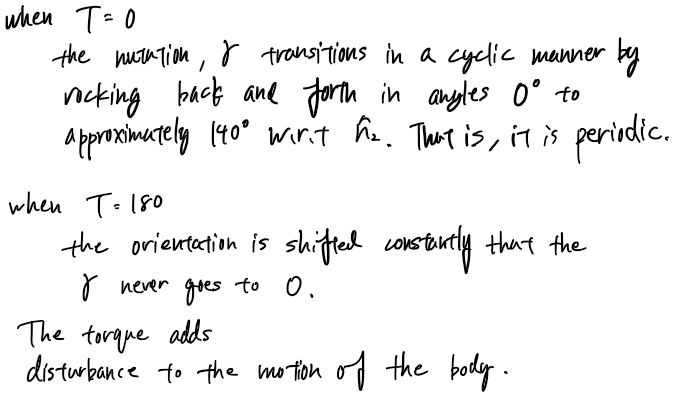 when T=0
the nutation, γ transitions in a cyclic manner by
rocking back and forth in angles 0° to
approximately 140° w.r.t n̂₂. That is, it is periodic.
when T=180
the orientation is shifted constantly that the
γ never goes to 0.
The torque adds
disturbance to the motion of the body.